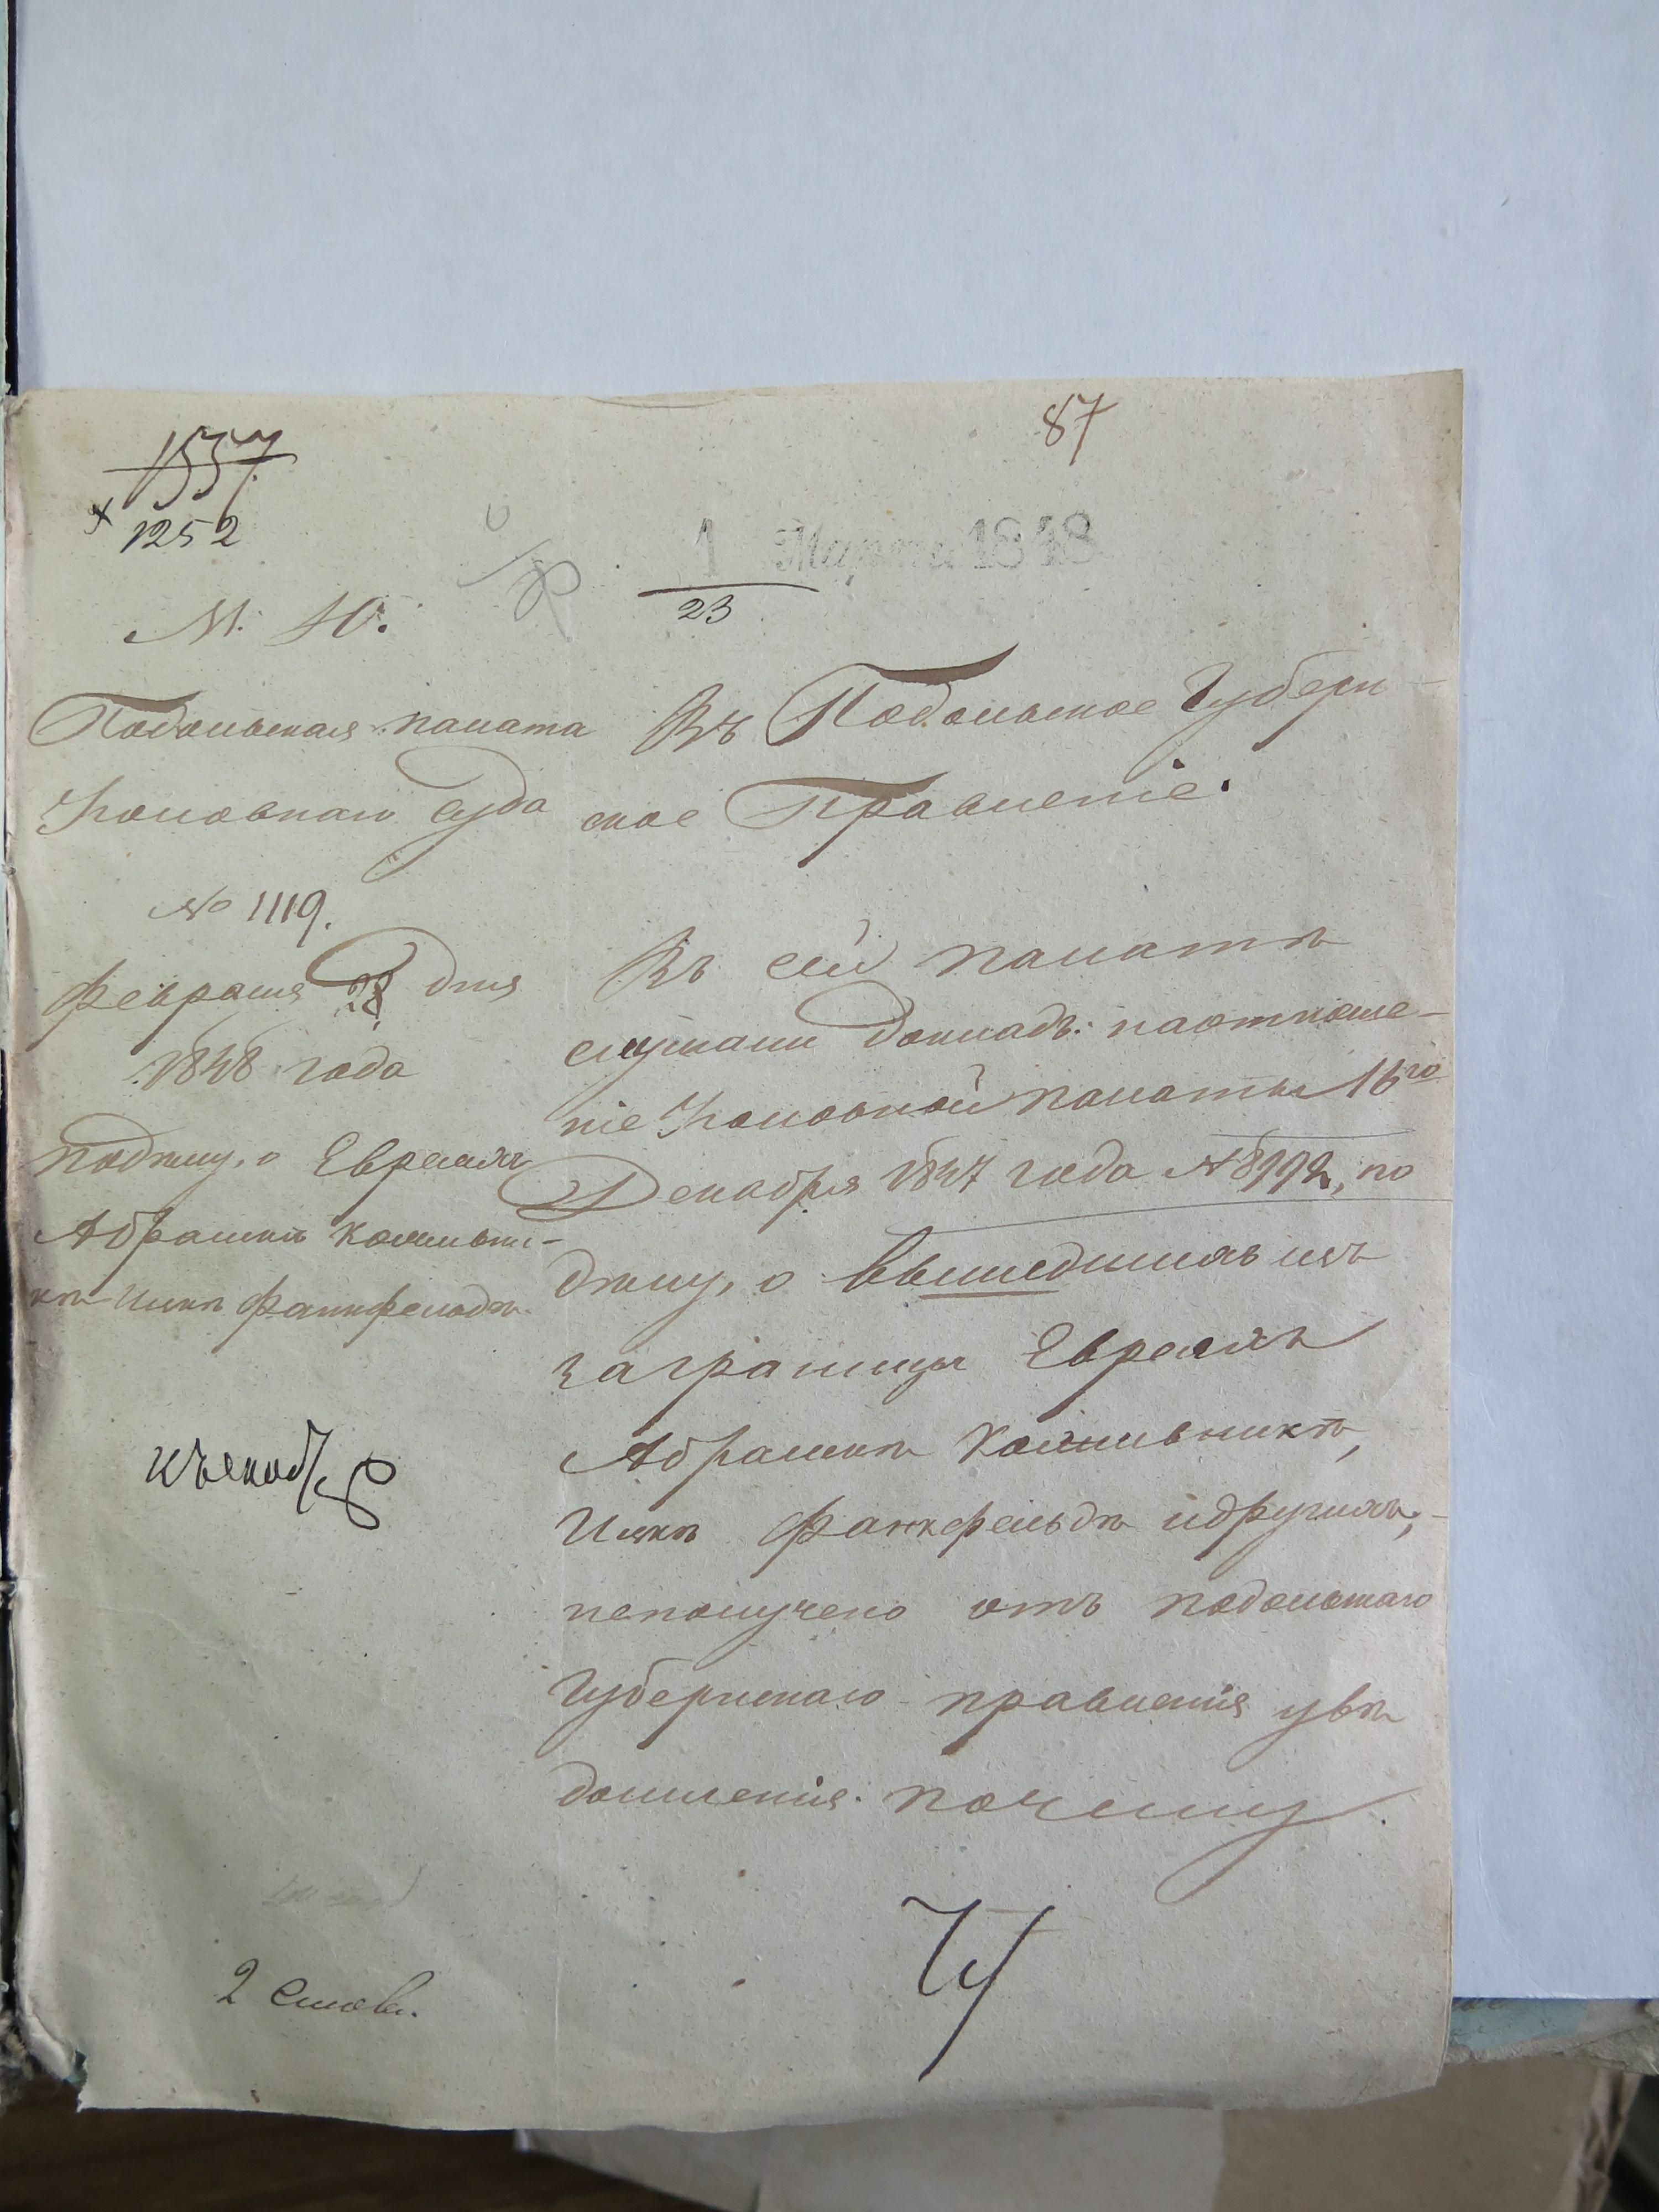 87
1557
1252
1 Марта 1848
23
М. 10.
Подольская палата
Уголовнаго Суда
№ 1119.
февраля 28 дня
1848 года
По делу, о Евреяхъ
Абрашкѣ Кольни-
кѣ Ицкѣ Фанкфельдѣ
2 Столъ.
Въ Подольское Губерн-
ское Правленіе.
Въ сей палатѣ
слушали докладъ: на отноше-
ніе Уголовной палаты 16го
Декабря 1847 года № 8992, по
дѣлу, о вышедшихъ изъ
заграницы Евреяхъ
Абрашкѣ
Ицкѣ Фанкфельдѣ и другихъ,
неполучено отъ подольскаго
Губернскаго правленія увѣ
домленія: почему